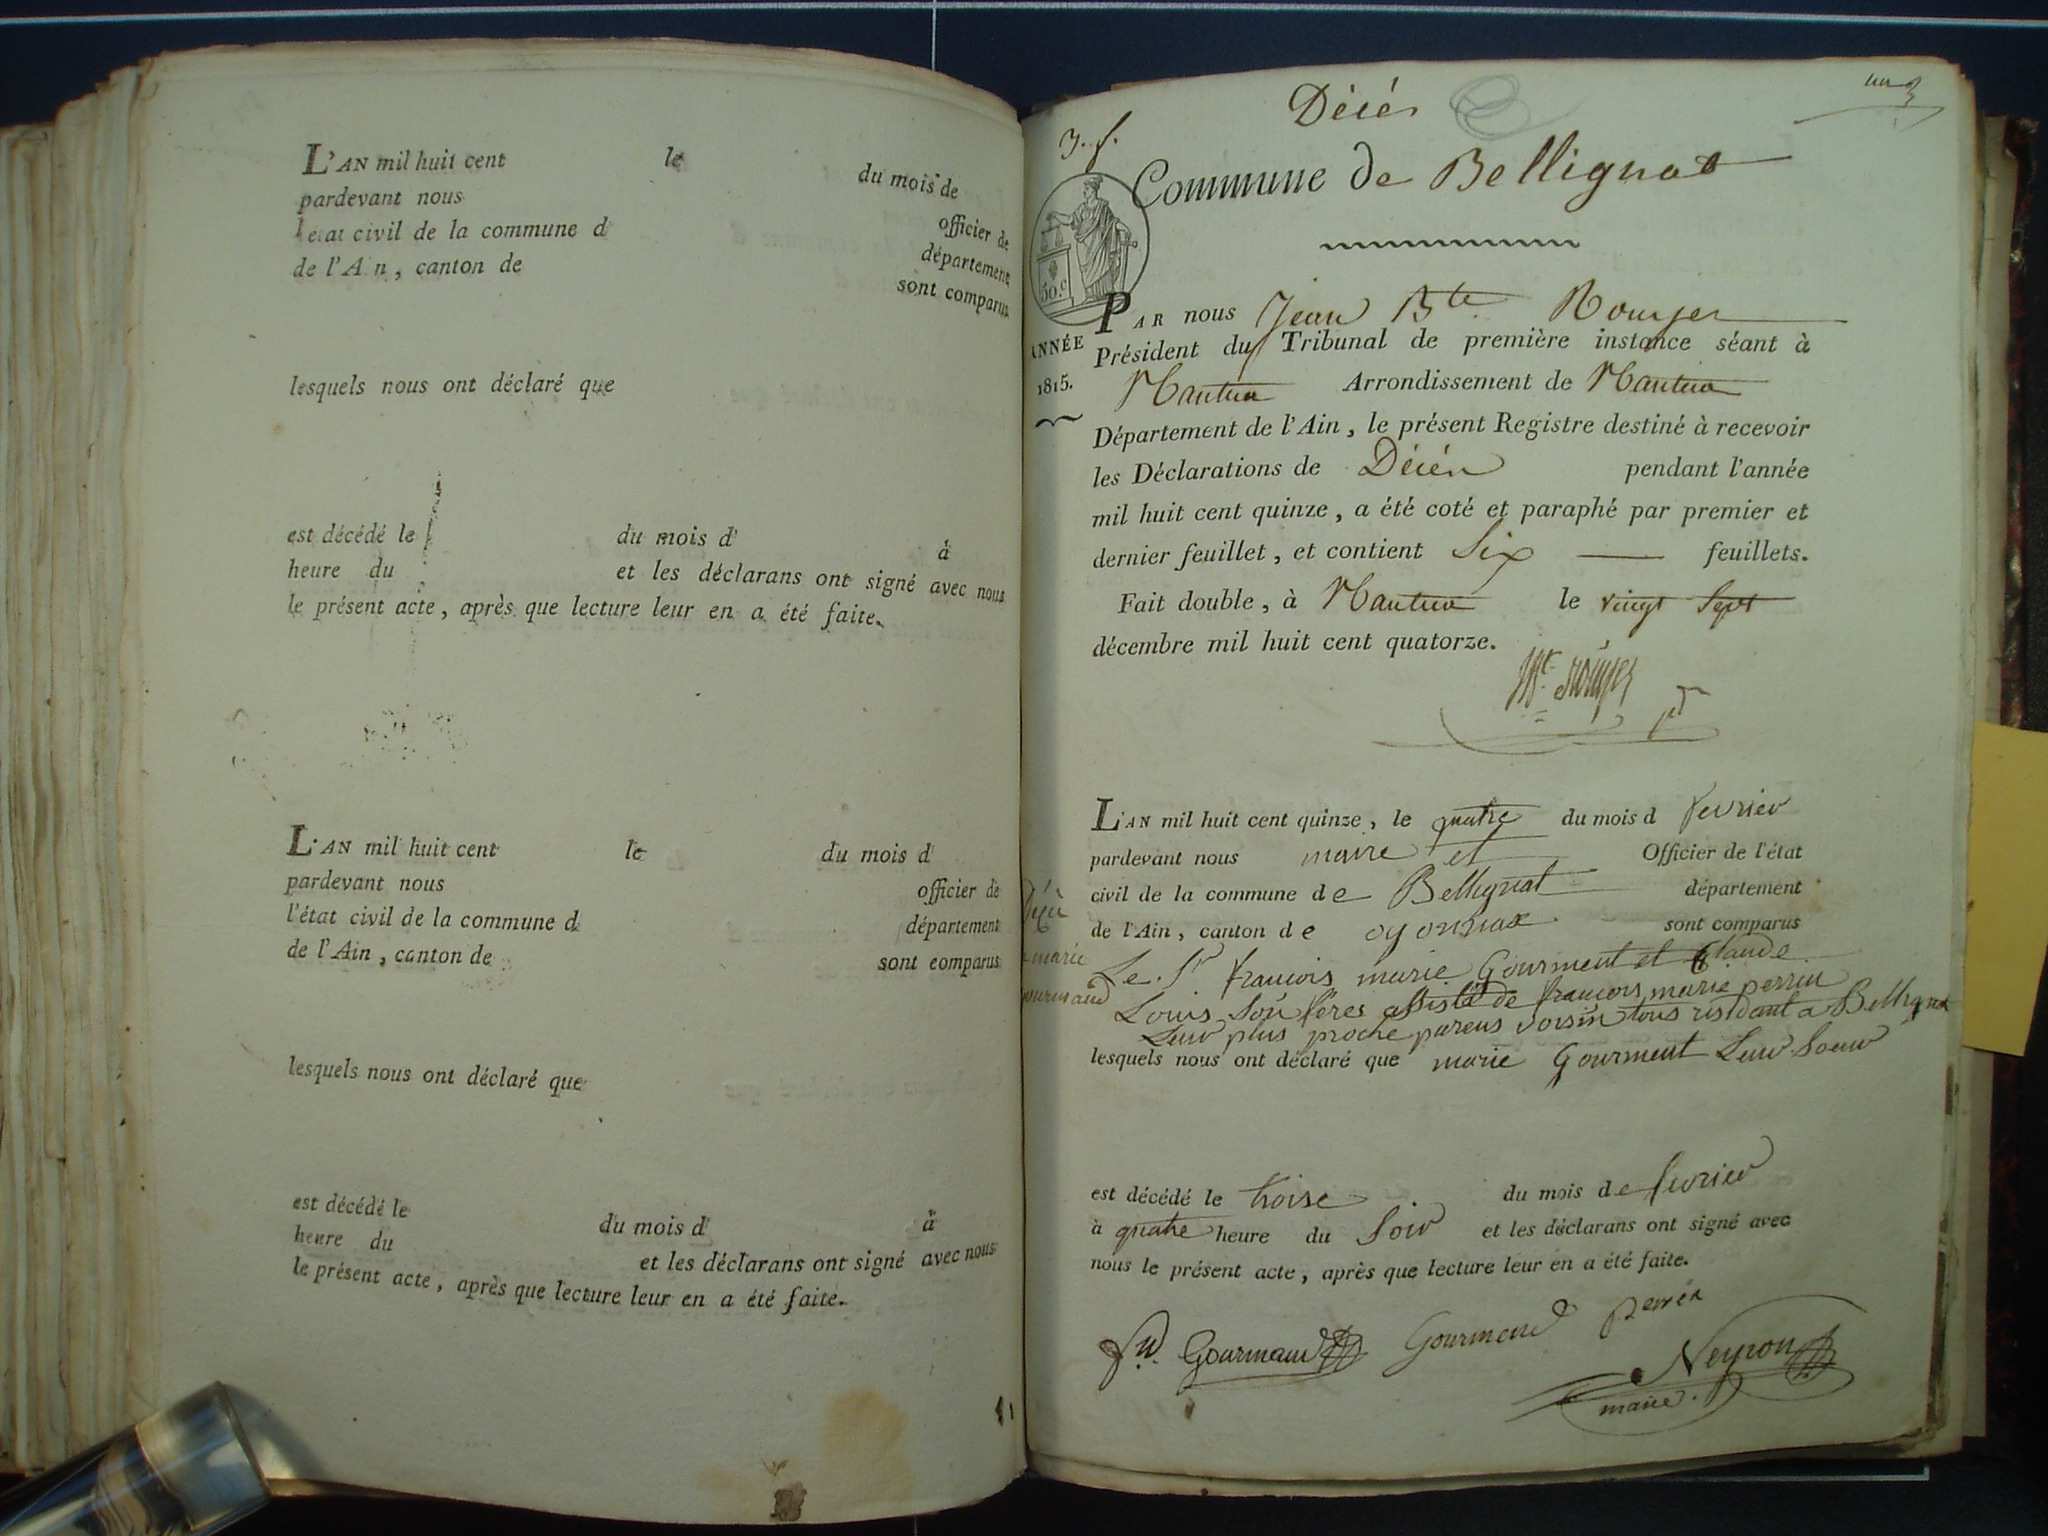 L'AN mil huit cent le du mois de
pardevant nous officier de
l'etat civil de la commune d département
de l'Ain, canton de sont comparus
lesquels nous ont déclaré que
est décédé le du mois d' à
heure du et les déclarans ont signé avec nous
le présent acte, après que lecture leur en a été faite.
L'AN mil huit cent le du mois d
pardevant nous officier de
l'état civil de la commune d département
de l'Ain, canton de sont comparus
lesquels nous ont déclaré que
est décédé le du mois d' à
heure du et les déclarans ont signé avec nous
le présent acte, après que lecture leur en a été faite.
Décés
Commune de Bellignat
50.c
ANNÉE
1815.
PAR nous Jean Bte Rouyer
Président du Tribunal de première instance séant à
Nantua Arrondissement de Nantua
Département de l'Ain, le présent Registre destiné à recevoir
les Déclarations de Décés pendant l'année
mil huit cent quinze, a été coté et paraphé par premier et
dernier feuillet, et contient Six feuillets.
Fait double, à Nantua le vingt Sept
décembre mil huit cent quatorze.
L'AN mil huit cent quinze, le quatre du mois d fevrier
pardevant nous maire et Officier de l'état
civil de la commune de Bellignat département
de l'Ain, canton de oyonnax sont comparus
Le Sr francois marie Gourment et Claude
Louis Son feres assisté de francois marie perrin
Leur plus proche parens voisin tous residant a Bellignat
lesquels nous ont déclaré que marie Gourment Leur Soeur
marie
gourmand
est décédé le troise du mois de fevrier
à quatre heure du Soir et les déclarans ont signé avec
nous le présent acte, après que lecture leur en a été faite.
Gourmand Gourmand perrin
Neyron
maire.